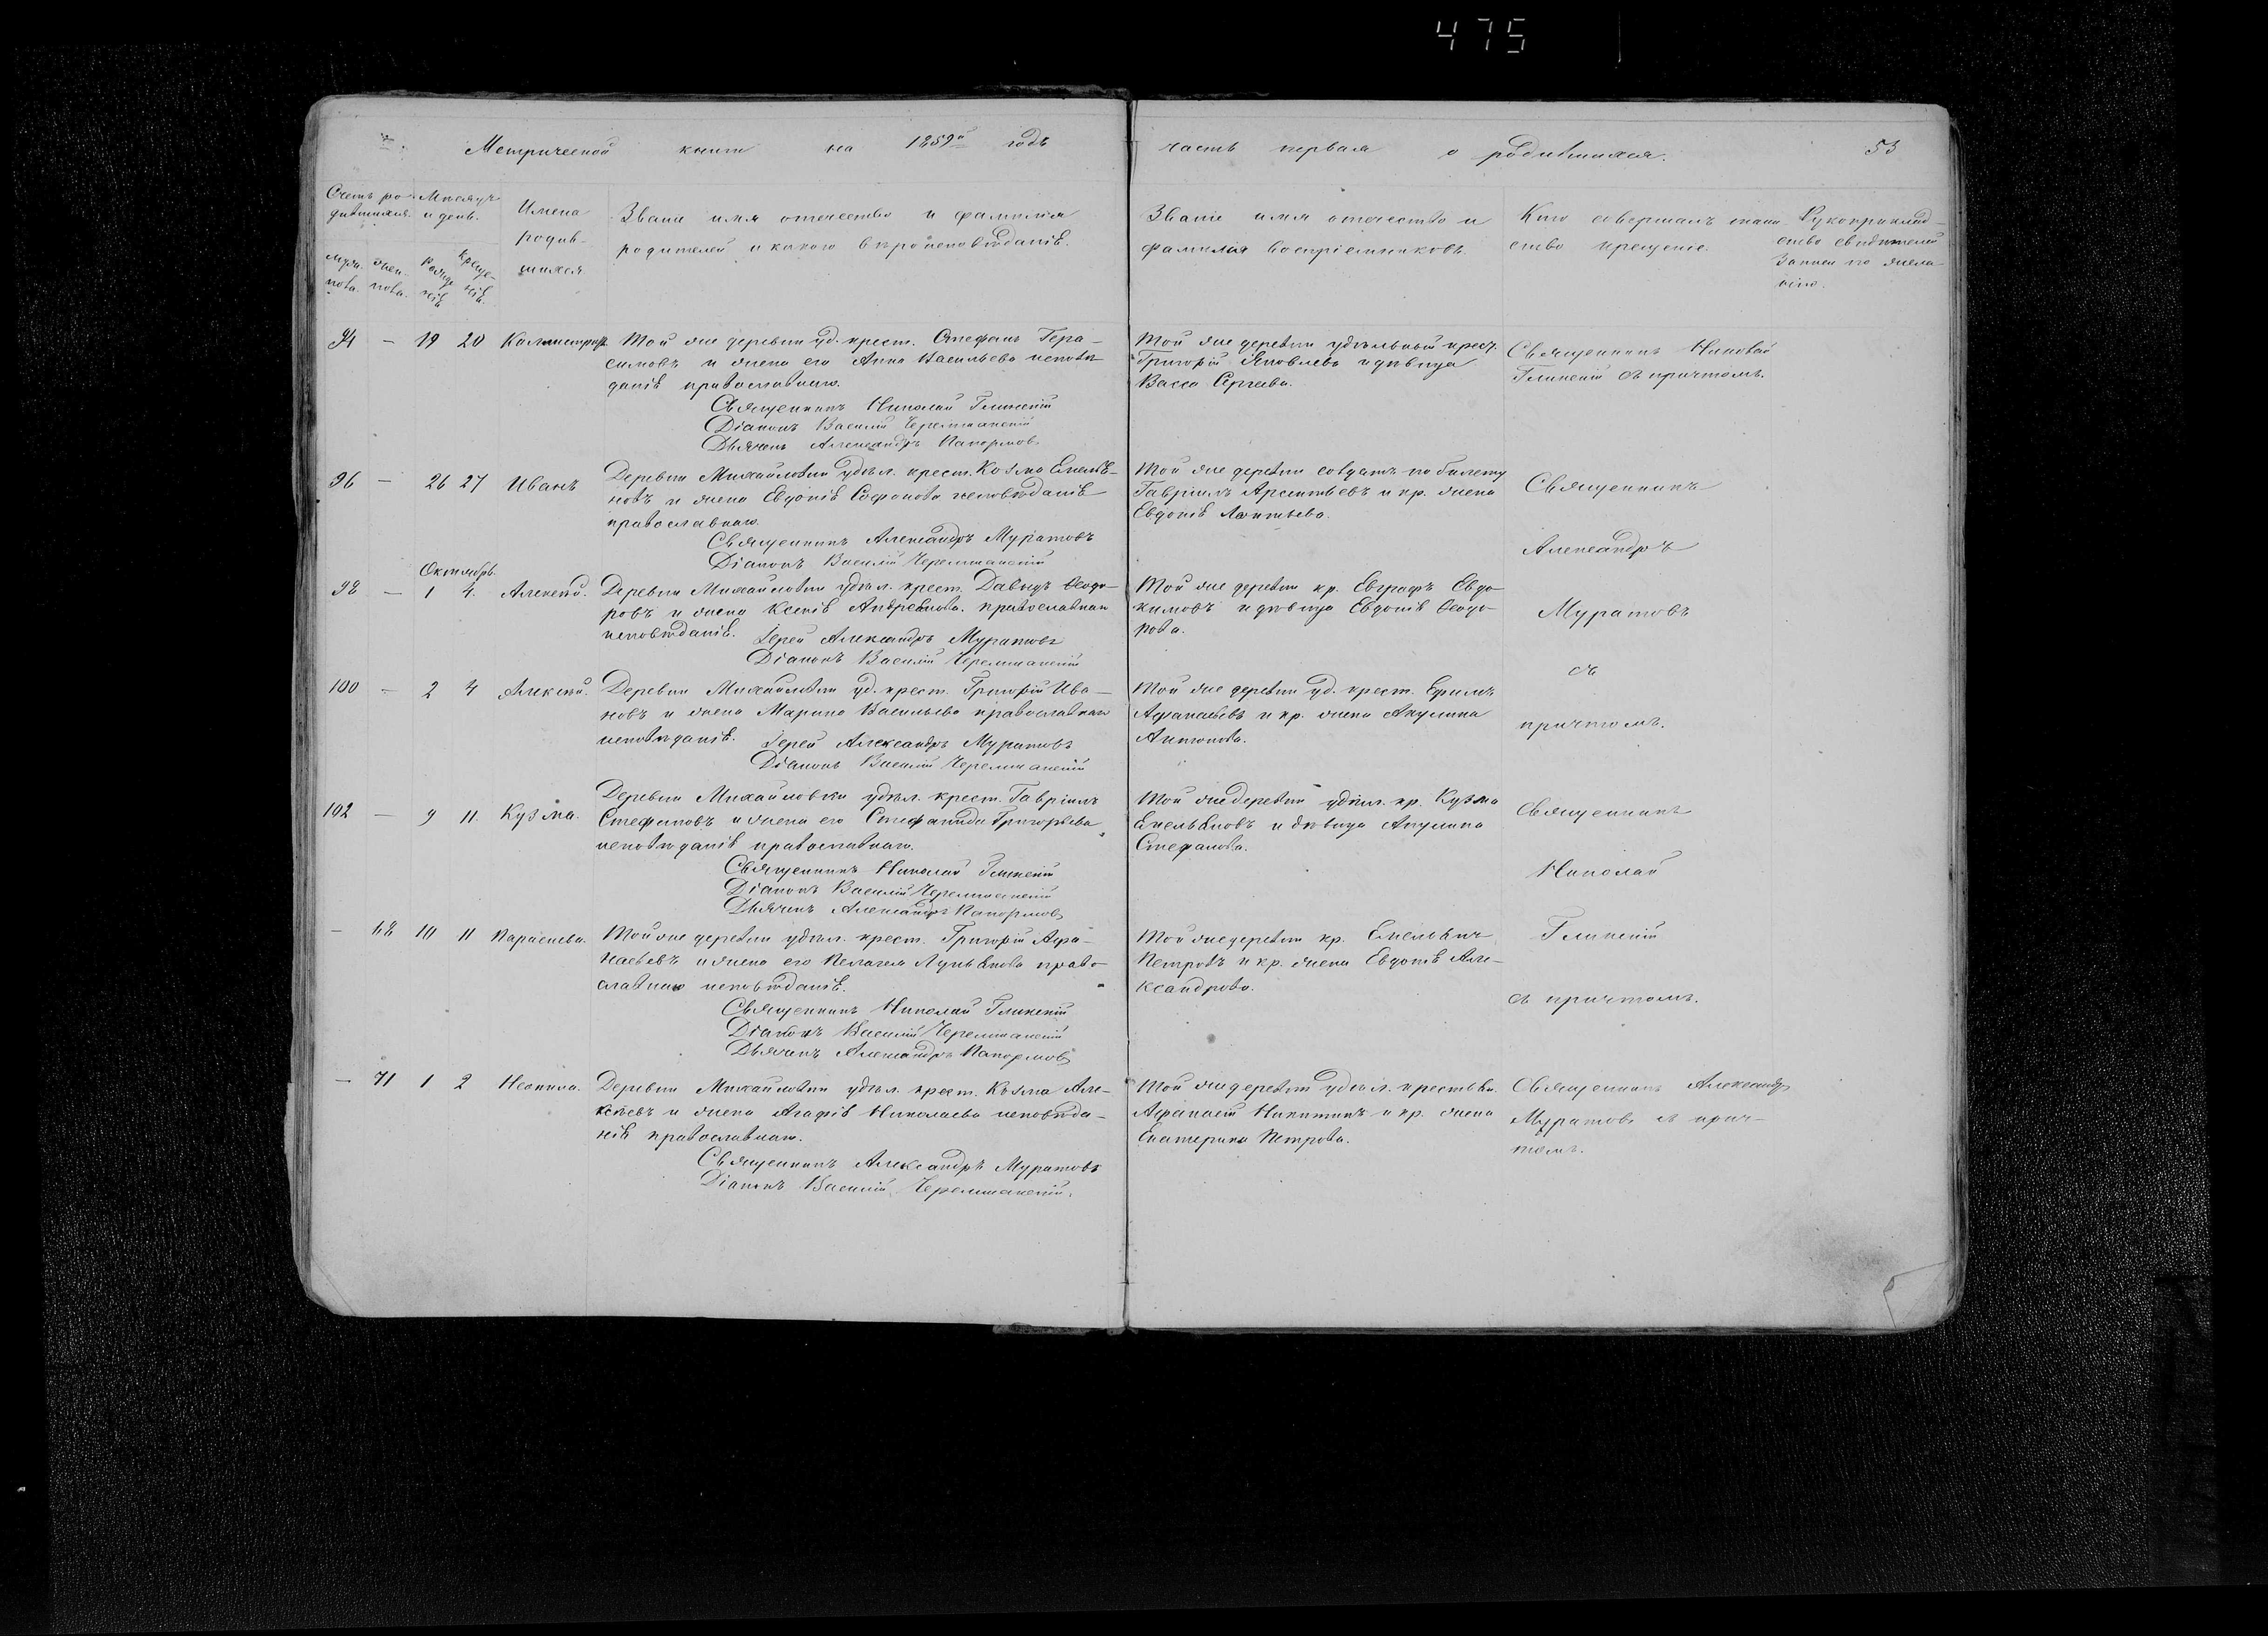 475
Метрической книги на 1859й годъ
часть первая о родившихся.
53
Счетъ ро-
дившихся.
Мѣсяцъ
и день.
Имена
родив-
шихся
Званіе имя отечество и фамилія
родителей и какого вѣроисповѣданія.
Званіе имя отечество и
фамилія воспріемниковъ.
Кто совершалъ таин
ство крещеніе.
Рукоприклад-
ство свидѣтелей
записи по жела-
нію.
муж. жен-
пола. пола.
рожде
нія
креще-
нія.
94 — 19 20 Каллистратъ
Той же деревни уд. крест. Стефанъ Гера-
симовъ и жена его Анна Васильева исповѣ-
данія православнаго.
Священникъ Николай Глинскій
Діаконъ Василій Черемшанскій
Дьячекъ Александръ Папормовъ
Той же деревни удѣльный крест.
Григорій Яковлевъ и дѣвица
Васса Сергѣева.
Священникъ Николай
Глинскій съ причтомъ.
96 — 26 27 Иванъ
Деревни Михайловки удѣл. крест. Козма Емелья-
новъ и жена Евдокія Софонова исповѣданія
православнаго.
Священникъ Александръ Муратовъ
Діаконъ Василій Черемшанскій
Той же деревни солдатъ по билету
Гавріилъ Арсентьевъ и кр. жена
Евдокія Леонтьева.
Священникъ
Александръ
Муратовъ
съ
причтомъ.
Октябрь
98 — 1 4. Алексѣй.
Деревни Михайловки удѣл. крест. Давыдъ Ѳеодо-
ровъ и жена Ксенія Андреянова. православнаго
исповѣданія. Іерей Александръ Муратовъ
Діаконъ Василій Черемшанскій
Той же деревни кр. Евграфъ Евдо-
кимовъ и дѣвица Евдокія Ѳеодо-
рова.
100 — 2 4 Алексѣй.
Деревни Михайловки уд. крест. Григорій Ива-
новъ и жена Марина Васильева православнаго
исповѣданія. Іерей Александръ Муратовъ
Діаконъ Василій Черемшанскій
Той же деревни уд. крест. Ефимъ
Афанасьевъ и кр. жена Акулина
Антонова.
102 — 9 11. Кузма.
Деревни Михайловки удѣл. крест. Гавріилъ
Стефановъ и жена его Стефанида Григорьева
исповѣданія православнаго.
Священникъ Николай Глинскій
Діаконъ Василій Черемшанскій
Дьячекъ Александръ Папормовъ
Той же деревни удѣл. кр. Кузма
Емельяновъ и дѣвица Акулина
Стефанова.
Священникъ
Николай
Глинскій
съ причтомъ.
— 68 10 11 Параскева.
Той же деревни удѣл. крест. Григорій Афа-
насьевъ и жена его Пелагея Лукьянова право-
славнаго исповѣданія.
Священникъ Николай Глинскій
Діаконъ Василій Черемшанскій
Дьячекъ Александръ Папормовъ
Той же деревни кр. Емельянъ
Петровъ и кр. жена Евдокія Але-
ксандрова.
— 71 1 2 Неонила.
Деревни Михайловки удѣл. крест. Козма Але-
ксѣевъ и жена Агафія Николаева исповѣда-
нія православнаго.
Священникъ Александръ Муратовъ
Діаконъ Василій Черемшанскій.
Той же деревни удѣл. крестьян.
Афанасій Никитинъ и кр. жена
Екатерина Петрова.
Священникъ Александръ
Муратовъ съ прич-
томъ.